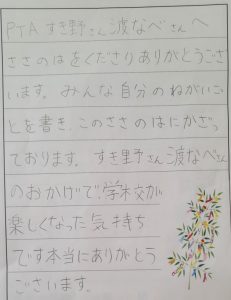 PTA すき野さん渡なべさんへ
ささのはをくださりありがとうござ
います。みんな自分のねがいご
とを書き、このささのはにかざっ
ております。すき野さん渡なべさん
のおかげで学校が
楽しくなった気持ち
です本当にありがとう
ございます。